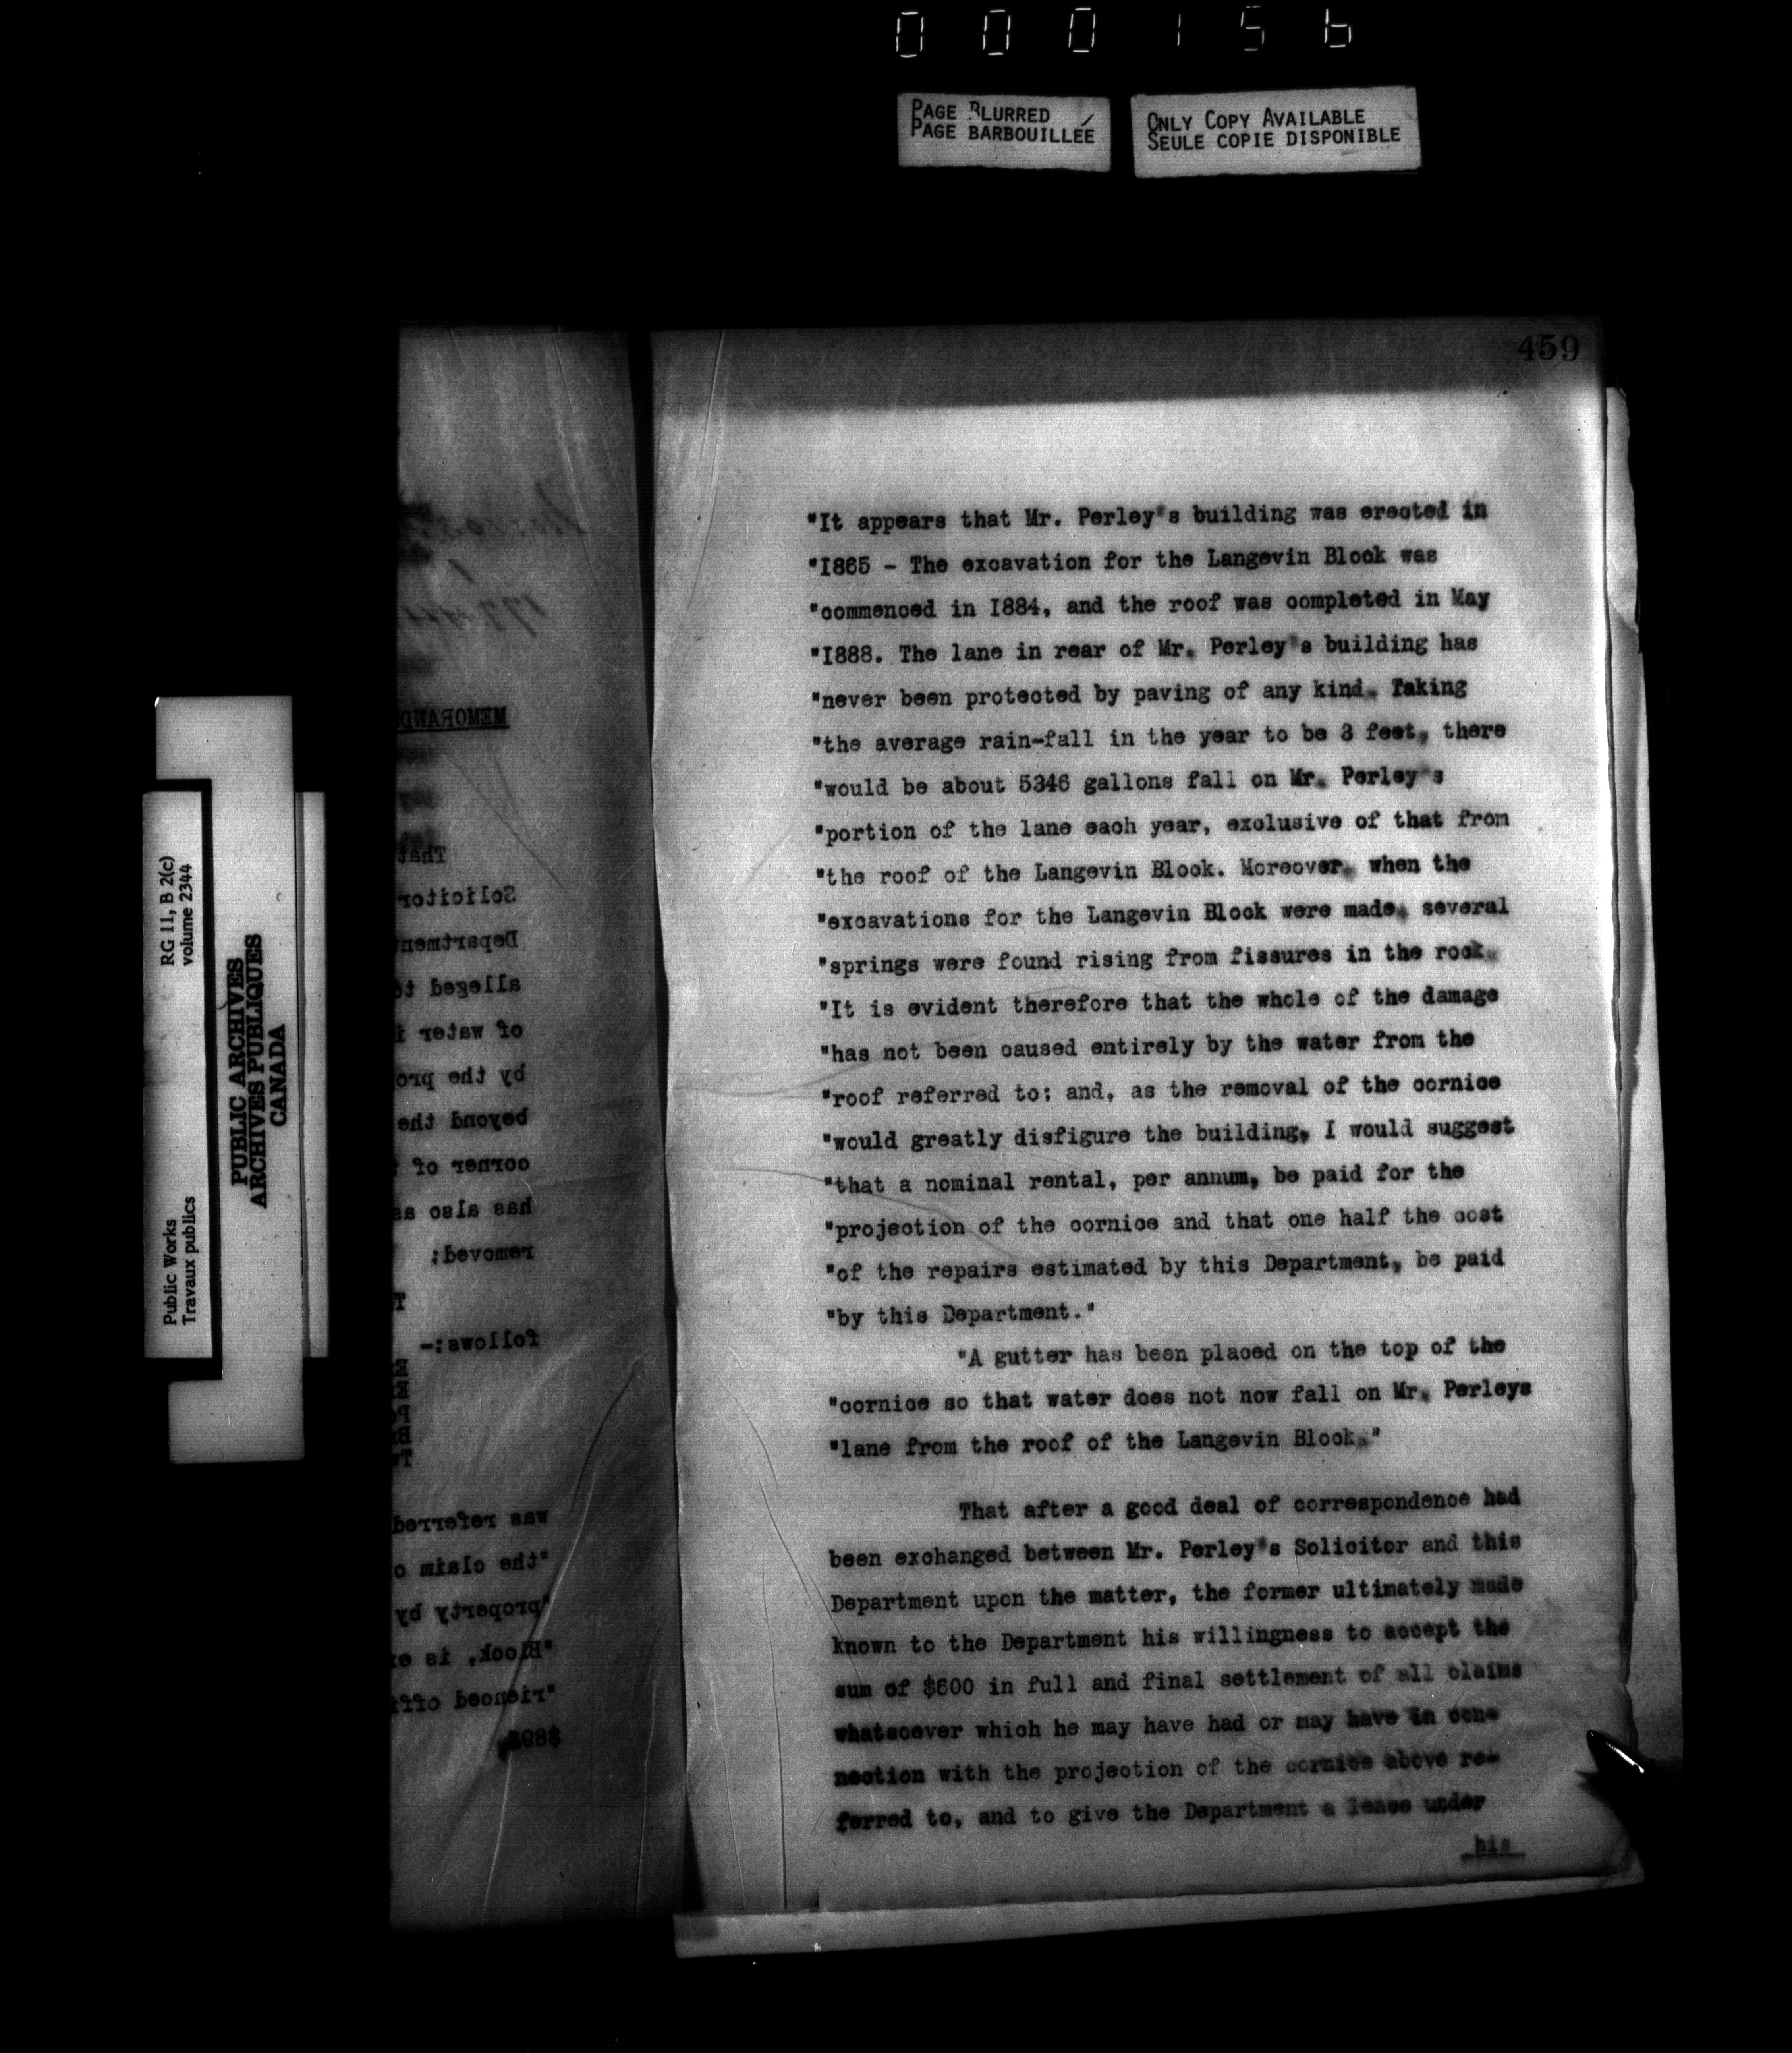 000156
PAGE BLURRED
PAGE BARBOUILLÉE
ONLY COPY AVAILABLE
SEULE COPIE DISPONIBLE
459
"It appears that Mr. Perley's building was erected in
"1865 - The excavation for the Langevin Block was
"commenced in 1884, and the roof was completed in May
"1888. The lane in rear of Mr. Perley's building has
"never been protected by paving of any kind. Taking
"the average rain-fall in the year to be 3 feet, there
"would be about 5346 gallons fall on Mr. Perley's
"portion of the lane each year, exclusive of that from
"the roof of the Langevin Block. Moreover, when the
"excavations for the Langevin Block were made, several
"springs were found rising from fissures in the rock.
"It is evident therefore that the whole of the damage
"has not been caused entirely by the water from the
"roof referred to; and, as the removal of the cornice
"would greatly disfigure the building, I would suggest
"that a nominal rental, per annum, be paid for the
"projection of the cornice and that one half the cost
"of the repairs estimated by this Department, be paid
"by this Department."
"A gutter has been placed on the top of the
"cornice so that water does not now fall on Mr. Perleys
"lane from the roof of the Langevin Block."
That after a good deal of correspondence had
been exchanged between Mr. Perley's Solicitor and this
Department upon the matter, the former ultimately made
known to the Department his willingness to accept the
sum of $600 in full and final settlement of all claims
whatsoever which he may have had or may have in con-
nection with the projection of the cornice above re-
ferred to, and to give the Department a lease under
his
Public Works
Travaux publics
RG 11, B 2(c)
volume 2344
PUBLIC ARCHIVES
ARCHIVES PUBLIQUES
CANADA
MEMORAND
That
Solicitor
Departmen
alleged t
of water
by the pro
beyond the
corner of
has also as
removed;
follows:-
was referred
"the claim o
"property by
"Block, is e
"rienced off